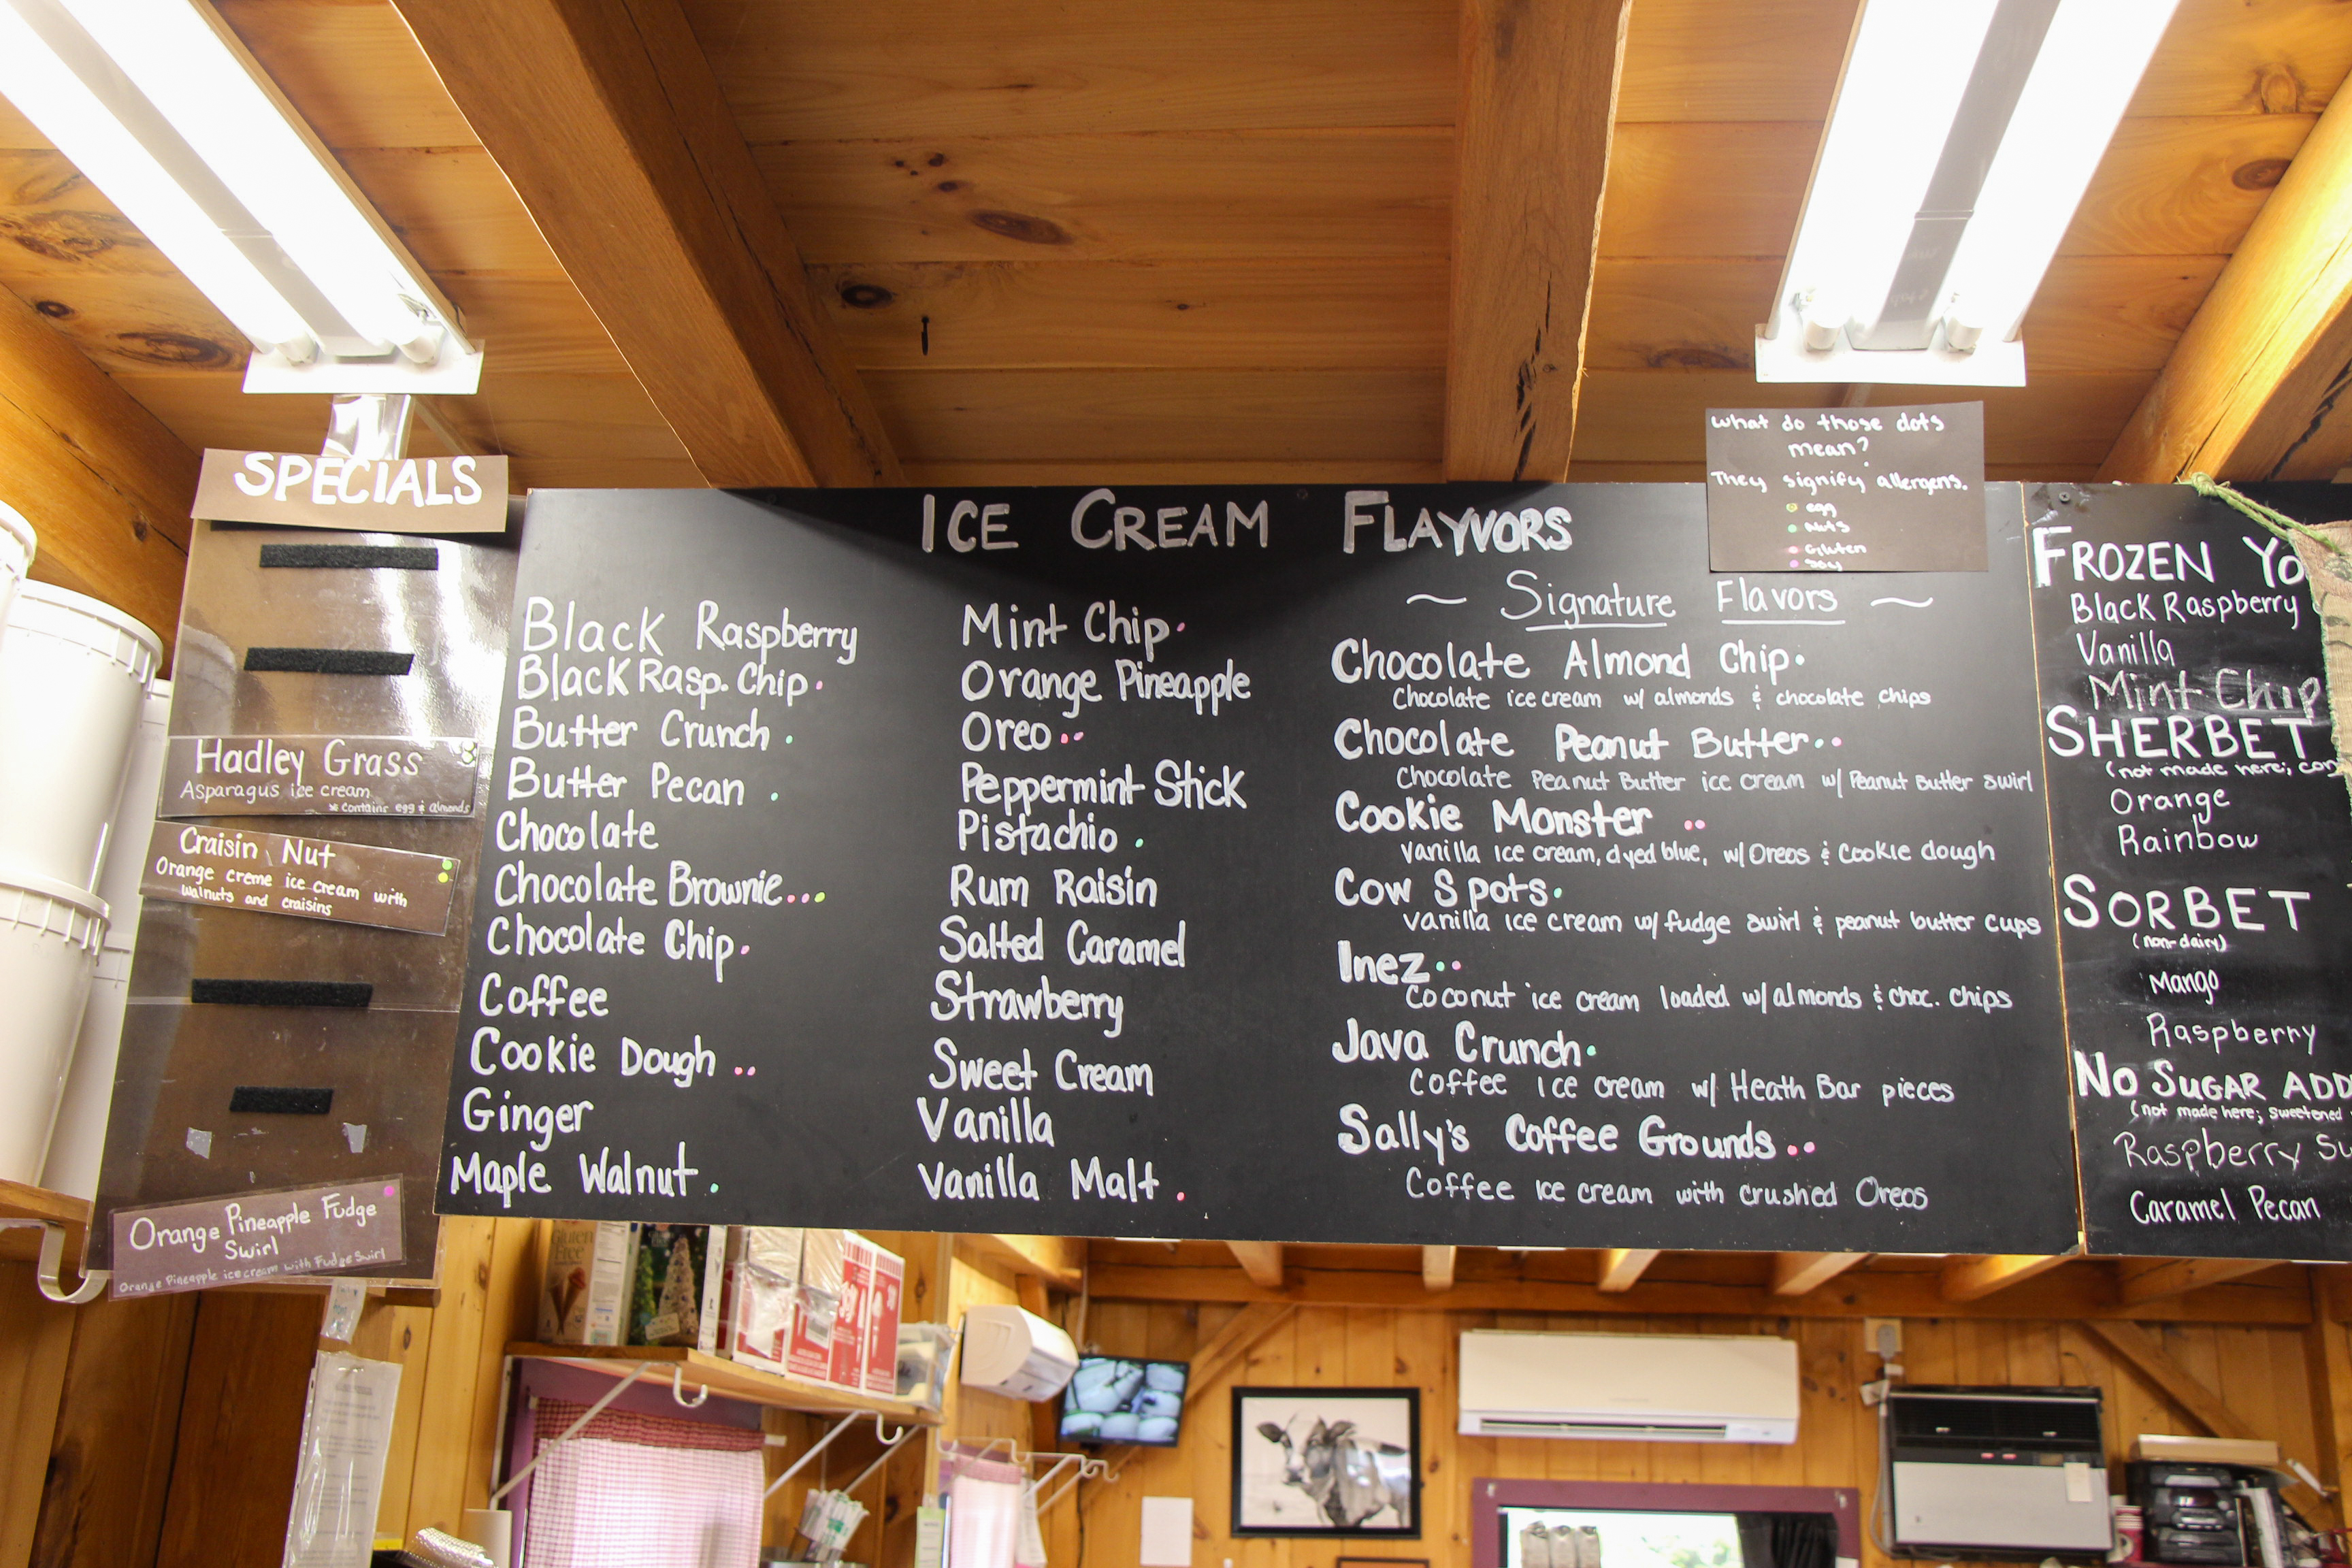 SPECIALS
Hadley Grass
Asparagus ice cream
* contains egg & almonds
Craisin Nut
Orange creme ice cream with
walnuts and craisins
Orange Pineapple Fudge
Swirl
Orange Pineapple ice cream with Fudge Swirl
ICE CREAM FLAYVORS
Black Raspberry
Black Rasp. Chip
Butter Crunch
Butter Pecan
Chocolate
Chocolate Brownie
Chocolate Chip
Coffee
Cookie Dough
Ginger
Maple Walnut
Mint Chip
Orange Pineapple
Oreo
Peppermint Stick
Pistachio
Rum Raisin
Salted Caramel
Strawberry
Sweet Cream
Vanilla
Vanilla Malt
~ Signature Flavors ~
Chocolate Almond Chip
Chocolate ice cream w/ almonds & chocolate chips
Chocolate Peanut Butter
Chocolate Peanut Butter ice cream w/ Peanut Butter swirl
Cookie Monster
Vanilla ice cream, dyed blue, w/ Oreos & Cookie dough
Cow Spots
Vanilla ice cream w/ fudge swirl & peanut butter cups
Inez
Coconut ice cream loaded w/ almonds & choc. chips
Java Crunch
Coffee Ice cream w/ Heath Bar pieces
Sally's Coffee Grounds
Coffee Ice cream with crushed Oreos
What do those dots
mean?
They signify allergens.
egg
Nuts
Gluten
Soy
FROZEN YO
Black Raspberry
Vanilla
Mint Chip
SHERBET
(not made here; con
Orange
Rainbow
SORBET
(non-dairy)
Mango
Raspberry
NO SUGAR ADD
(not made here; sweetened
Raspberry Sw
Caramel Pecan
Gluten
Free